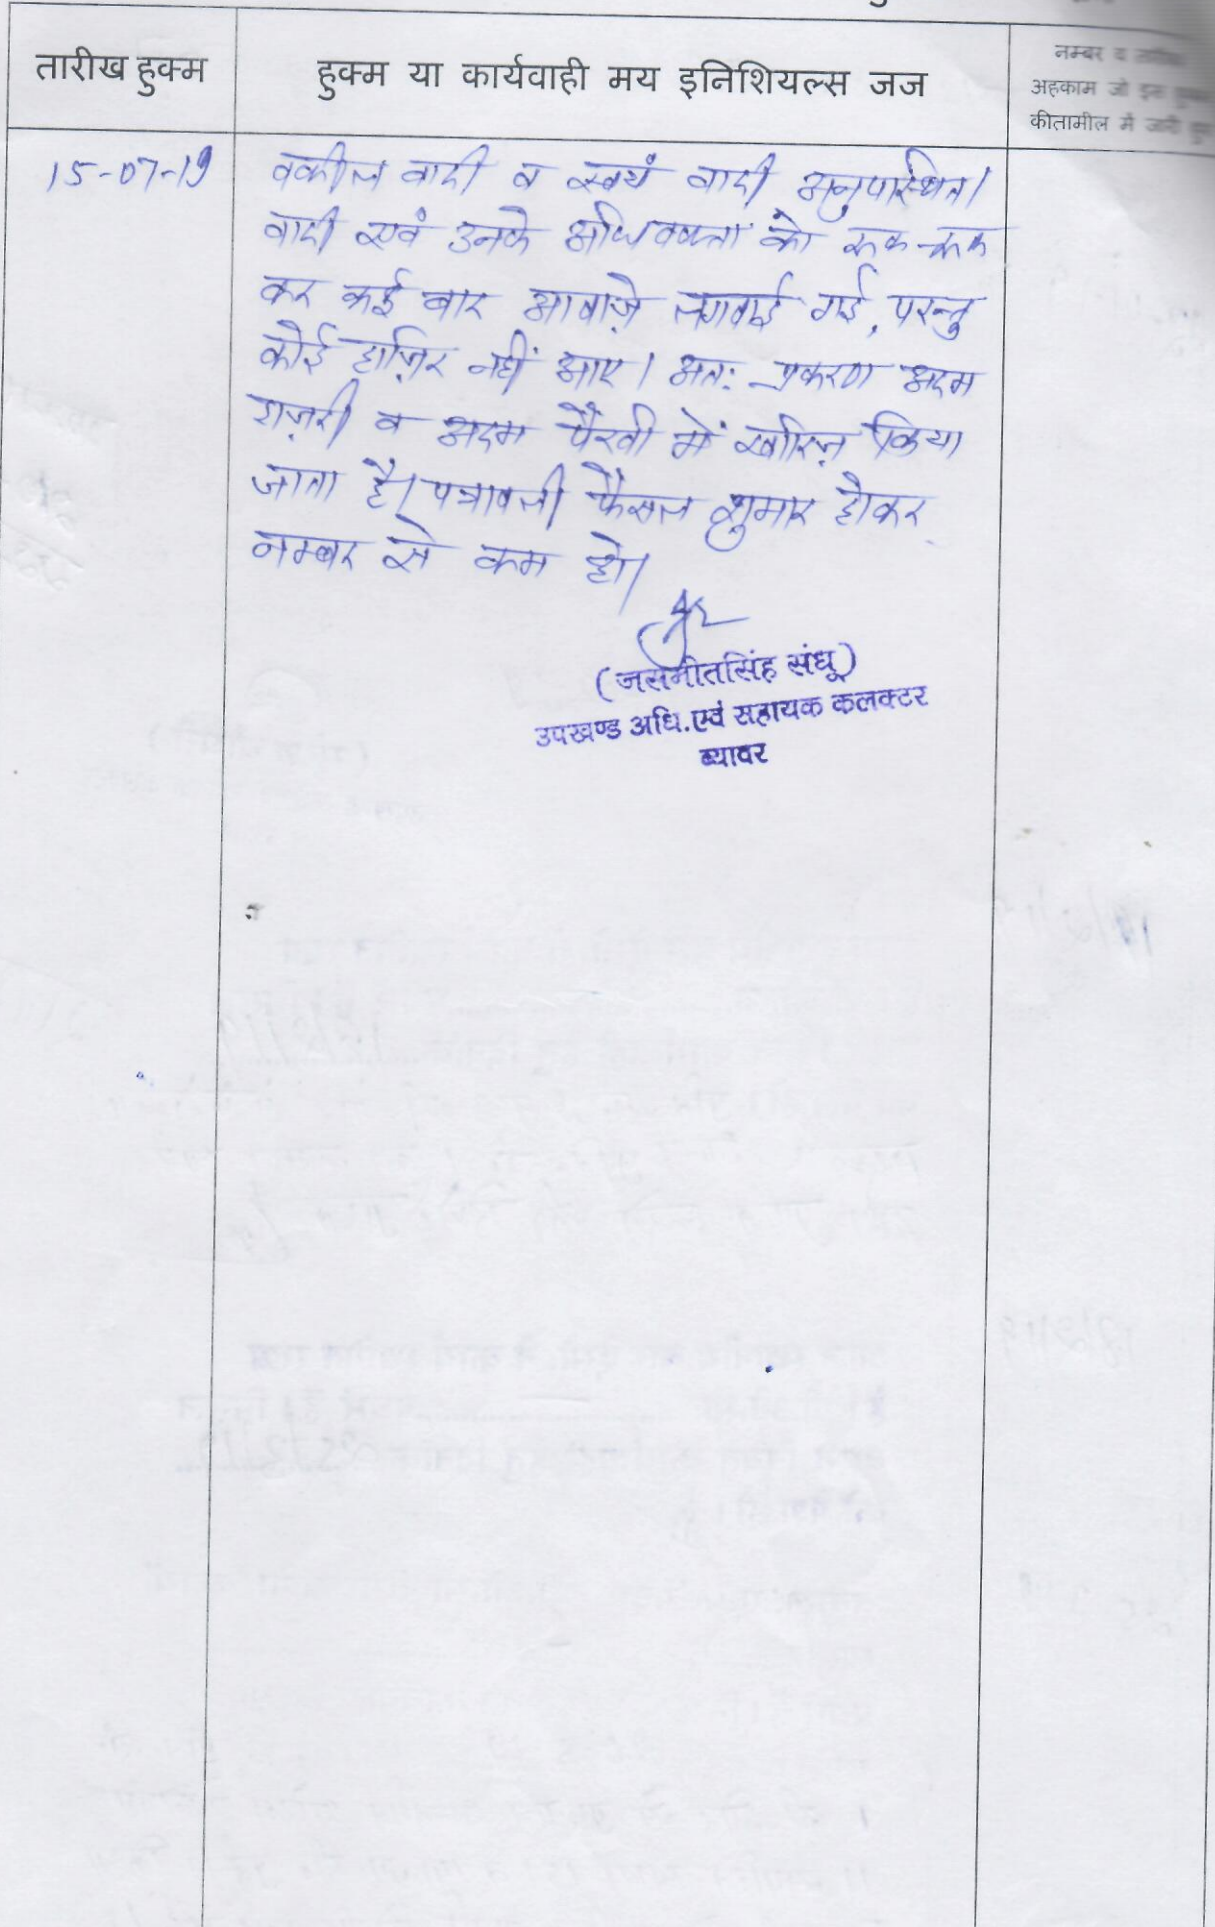 तारीख हुक्म
हुक्म या कार्यवाही मय इनिशियल्स जज
नम्बर व
अहकाम जो इस
कीतामील में जारी
15-07-19
वकील वादी व स्वयं वादी अनुपस्थित।
वादी एवं उनके अधिवक्ता को रूक-रूक
कर कई बार आवाज़े लगवाई गई, परन्तु
कोई हाज़िर नहीं आए। अतः प्रकरण अदम
हाज़री व अदम पैरवी में खारिज़ किया
जाता है। पत्रावली फैसल शुमार होकर
नम्बर से कम हो।
(जसमीतसिंह संधू)
उपखण्ड अधि. एवं सहायक कलक्टर
ब्यावर